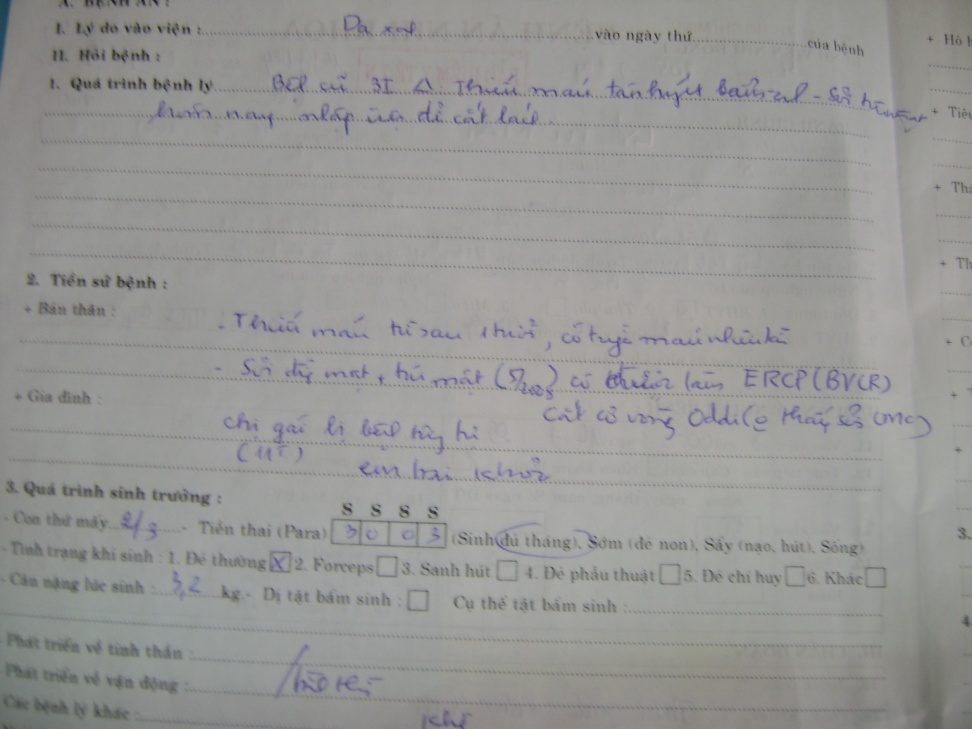 A. BỆNH ÁN :
I. Lý do vào viện : Da xanh vào ngày thứ của bệnh
II. Hỏi bệnh :
1. Quá trình bệnh lý Bệnh cũ Δ Thiếu máu tán huyết bẩm sinh - Sỏi túi mật
hôm nay nhập viện để cắt lách
2. Tiền sử bệnh :
+ Bản thân :
- Thiếu máu từ sau 1 tuổi, có truyền máu nhiều lần
- Sỏi mật, túi mật (5/2008) có làm ERCP (BVCR)
cắt cơ vòng Oddi (thấy sỏi OMC)
+ Gia đình :
chị gái bị bệnh tương tự
(11T) em trai khỏe
3. Quá trình sinh trưởng :
S S S S
- Con thứ mấy 2/3 - Tiền thai (Para) 3 0 0 3 (Sinh đủ tháng), Sớm (đẻ non), Sẩy (nạo, hút), Sống)
- Tình trạng khi sinh : 1. Đẻ thường X 2. Forceps 3. Sanh hút 4. Đẻ phẫu thuật 5. Đẻ chỉ huy 6. Khác
- Cân nặng lúc sinh : 3,2 kg - Dị tật bẩm sinh : Cụ thể tật bẩm sinh :
- Phát triển về tinh thần :
- Phát triển về vận động : bình thường
Các bệnh lý khác :
+ Hô h
+ Tiêu
+ Th
+ Th
+ C
3.
4.